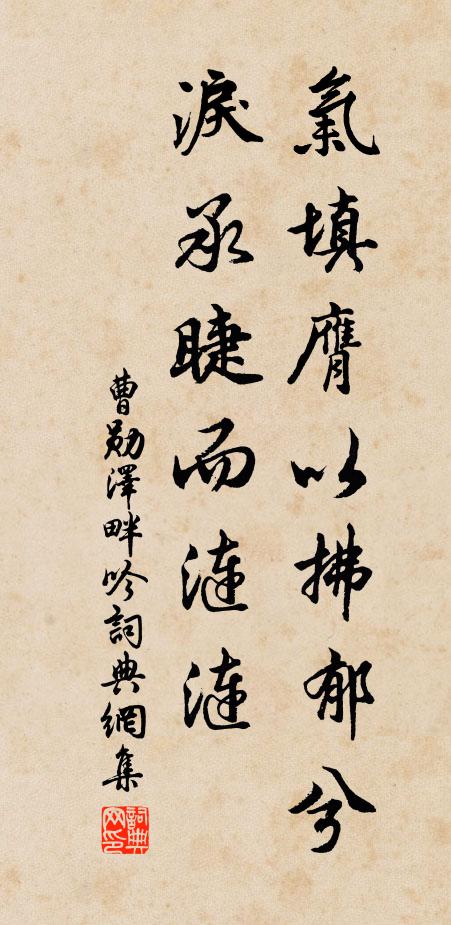 氣填膺以拂郁兮
淚承睫而漣漣
曹勛澤畔吟詞典網集
詞典网印